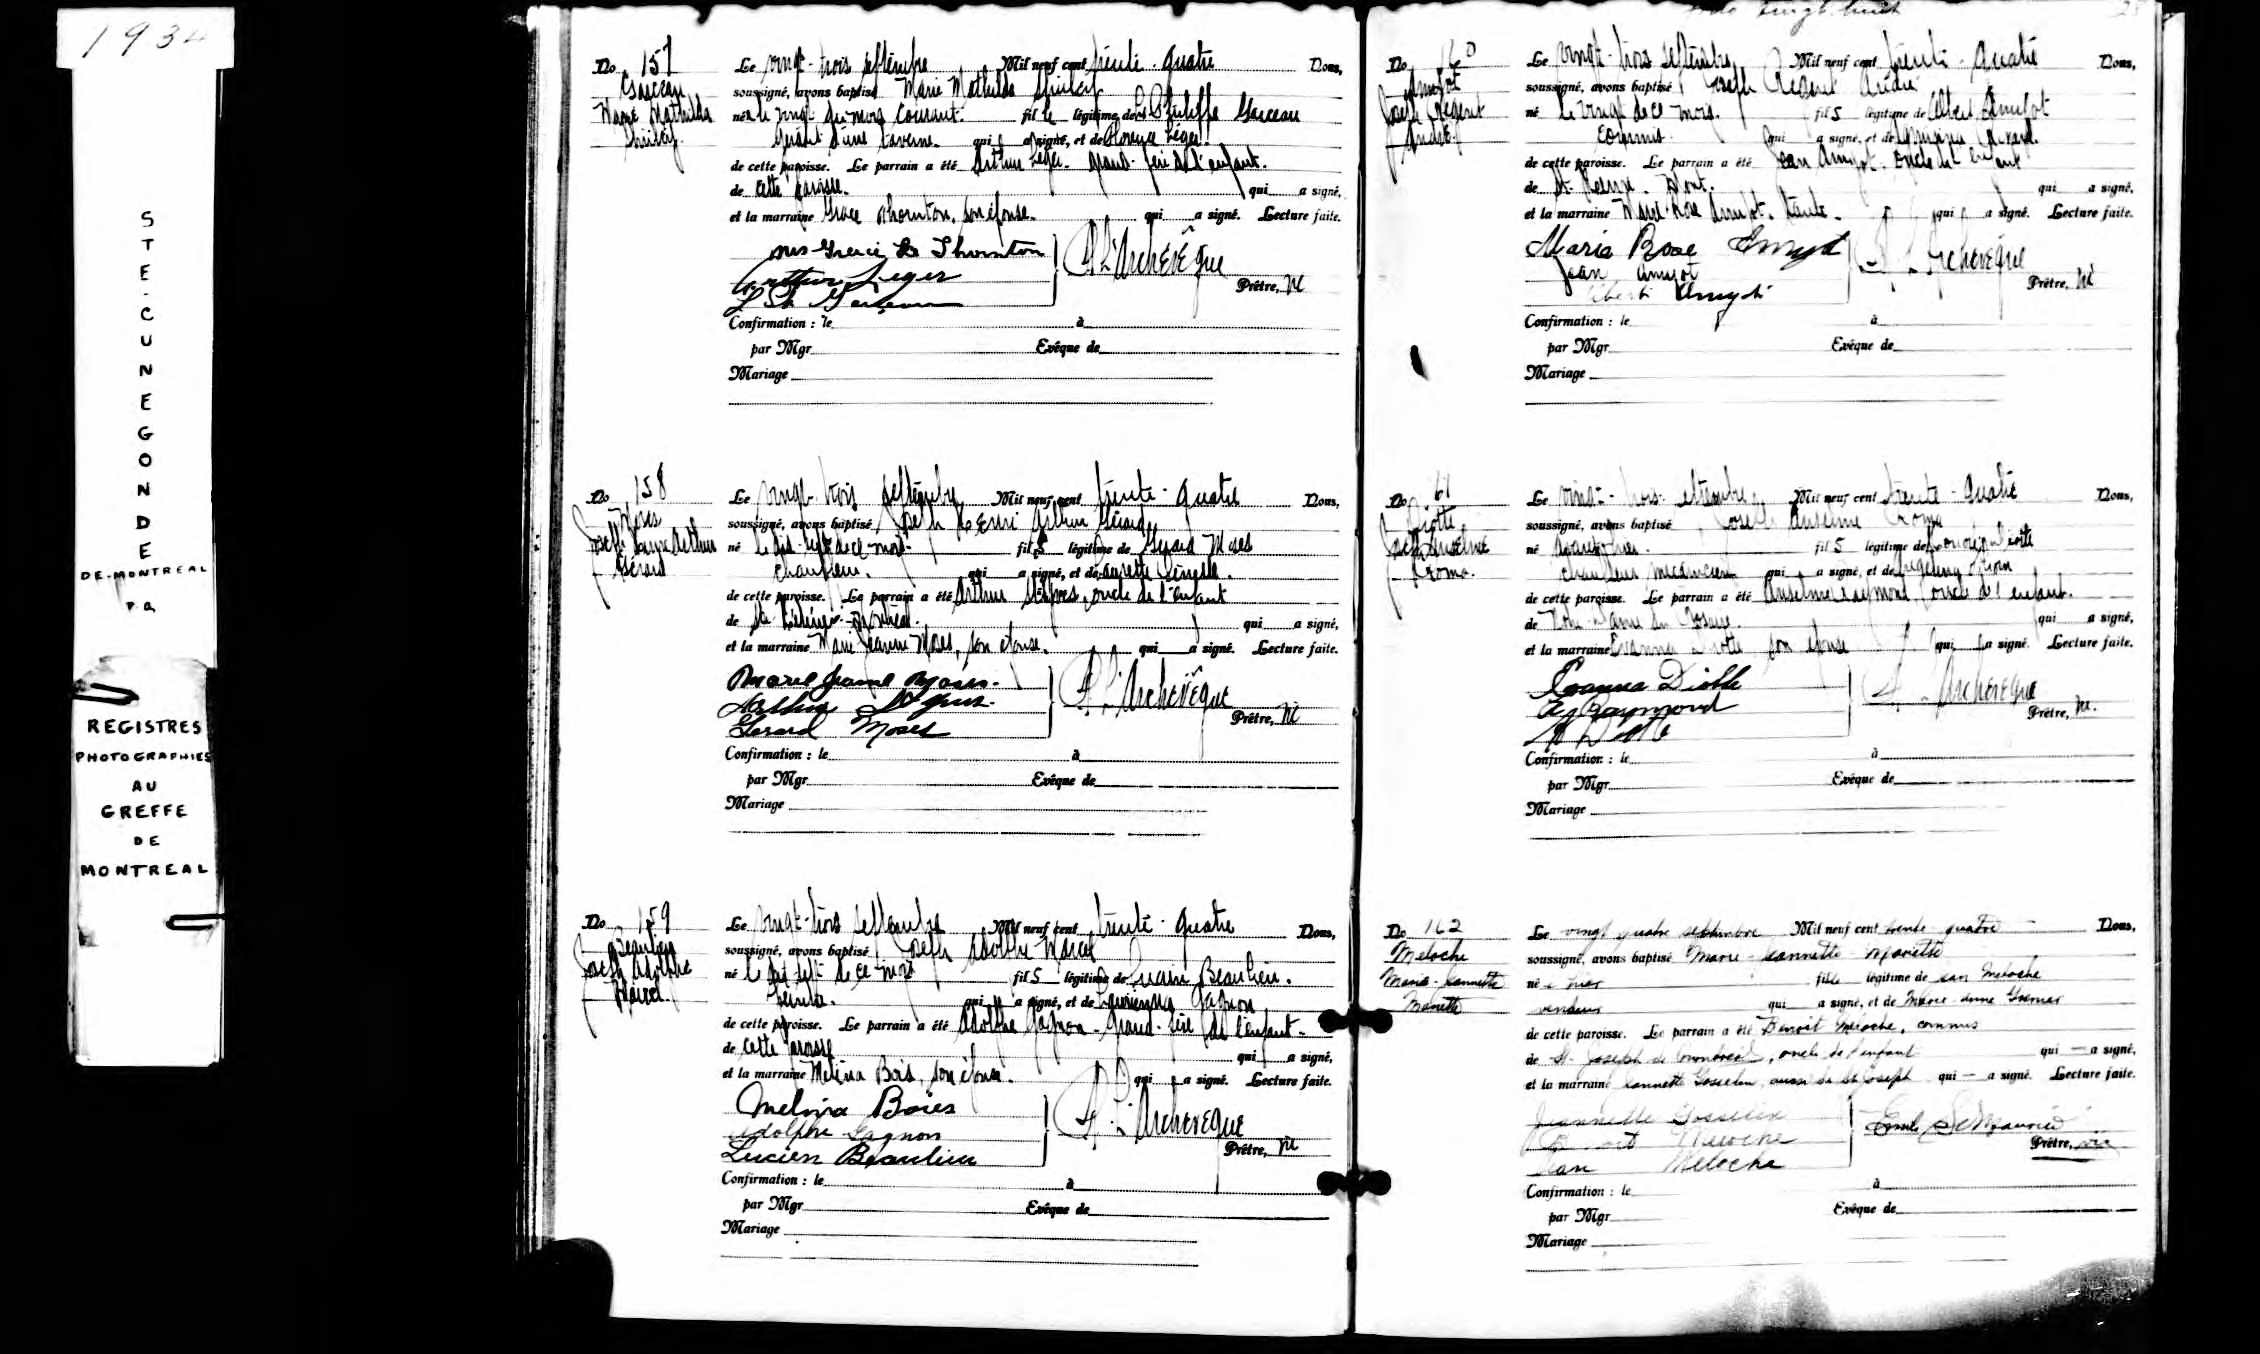 1934
STE-CUNEGONDE
DE-MONTREAL
P.Q.
REGISTRES
PHOTOGRAPHIES
AU
GREFFE
DE
MONTREAL
No 157
Garceau
Marie Mathilda
Shirley
Le vingt-trois septembre Mil neuf cent trente-quatre Nous,
soussigné, avons baptisé Marie Mathilda Shirley
née le vingt du mois courant fille légitime de Ls Philippe Garceau
gérant d'une taverne qui a signé, et de Florence Léger
de cette paroisse. Le parrain a été Arthur Léger, grand-père de l'enfant.
de cette paroisse. qui a signé,
et la marraine Grace Thornton, son épouse. qui a signé. Lecture faite.
Mrs Grace L. Thornton
Arthur Leger
L Ph Garceau
A. L'Archevêque
Prêtre, vic
Confirmation : le à
par Mgr Evêque de
Mariage
No 158
Moses
Joseph Henri Arthur
Gérard
Le vingt-trois septembre Mil neuf cent trente-quatre Nous,
soussigné, avons baptisé Joseph Henri Arthur Gérard
né le dix-sept de ce mois fils légitime de Gérard Moses
chauffeur. qui a signé, et de Laurette
de cette paroisse. Le parrain a été Arthur, oncle de l'enfant
de Montréal. qui a signé,
et la marraine Marie Jeanne Moses, son épouse. qui a signé. Lecture faite.
Marie Jeanne Moses
Arthur
Gerard Moses
A. L'Archevêque
Prêtre, vic
Confirmation : le à
par Mgr Evêque de
Mariage
No 159
Beaulieu
Joseph Adolphe
Marcel
Le vingt-trois septembre Mil neuf cent trente-quatre Nous,
soussigné, avons baptisé Joseph Adolphe Marcel
né le dix-sept de ce mois fils légitime de Lucien Beaulieu.
qui a signé, et de Gagnon
de cette paroisse. Le parrain a été Adolphe Gagnon - grand-père de l'enfant -
de cette paroisse qui a signé,
et la marraine Melina Bois, son épouse. qui a signé. Lecture faite.
Melvina Boies
Adolphe Gagnon
Lucien Beaulieu
A. L'Archevêque
Prêtre, vic
Confirmation : le à
par Mgr Evêque de
Mariage
vingt-huit
No 160
Amyot
Joseph Régent
André
Le vingt-trois septembre Mil neuf cent trente-quatre Nous,
soussigné, avons baptisé Joseph Régent André
né le vingt de ce mois. fils légitime de Albert Amyot
commis. qui a signé, et de
de cette paroisse. Le parrain a été Jean Amyot, oncle de l'enfant
de Mont. qui a signé,
et la marraine Marie-Rose Amyot, tante. qui a signé. Lecture faite.
Marie Rose Amyot
Jean Amyot
Albert Amyot
A. L'Archevêque
Prêtre, vic
Confirmation : le à
par Mgr Evêque de
Mariage
No 161
Diotte
Joseph Anselme
Roma.
Le vingt-trois septembre Mil neuf cent trente-quatre Nous,
soussigné, avons baptisé Joseph Anselme Roma
né fils légitime de Diotte
chauffeur mécanicien qui a signé, et de
de cette paroisse. Le parrain a été Anselme Raymond, oncle de l'enfant.
de Notre-Dame du Rosaire. qui a signé,
et la marraine Exanna Diotte son épouse qui a signé. Lecture faite.
Exanna Diotte
Raymond
Diotte
A. L'Archevêque
Prêtre, vic.
Confirmation : le à
par Mgr Evêque de
Mariage
No 162
Meloche
Marie-Jeannette
Mariette
Le vingt quatre septembre Mil neuf cent trente quatre Nous,
soussigné, avons baptisé Marie-Jeannette-Mariette
née hier fille légitime de Jean Meloche
vendeur qui a signé, et de Marie-Anne
de cette paroisse. Le parrain a été Benoit Meloche, commis
de St-Joseph de Montréal, oncle de l'enfant qui — a signé,
et la marraine Jeannette Gosselin, aussi de St-Joseph qui — a signé. Lecture faite.
Jeannette Gosselin
Benoit Meloche
Jean Meloche
Prêtre, vic
Confirmation : le à
par Mgr Evêque de
Mariage